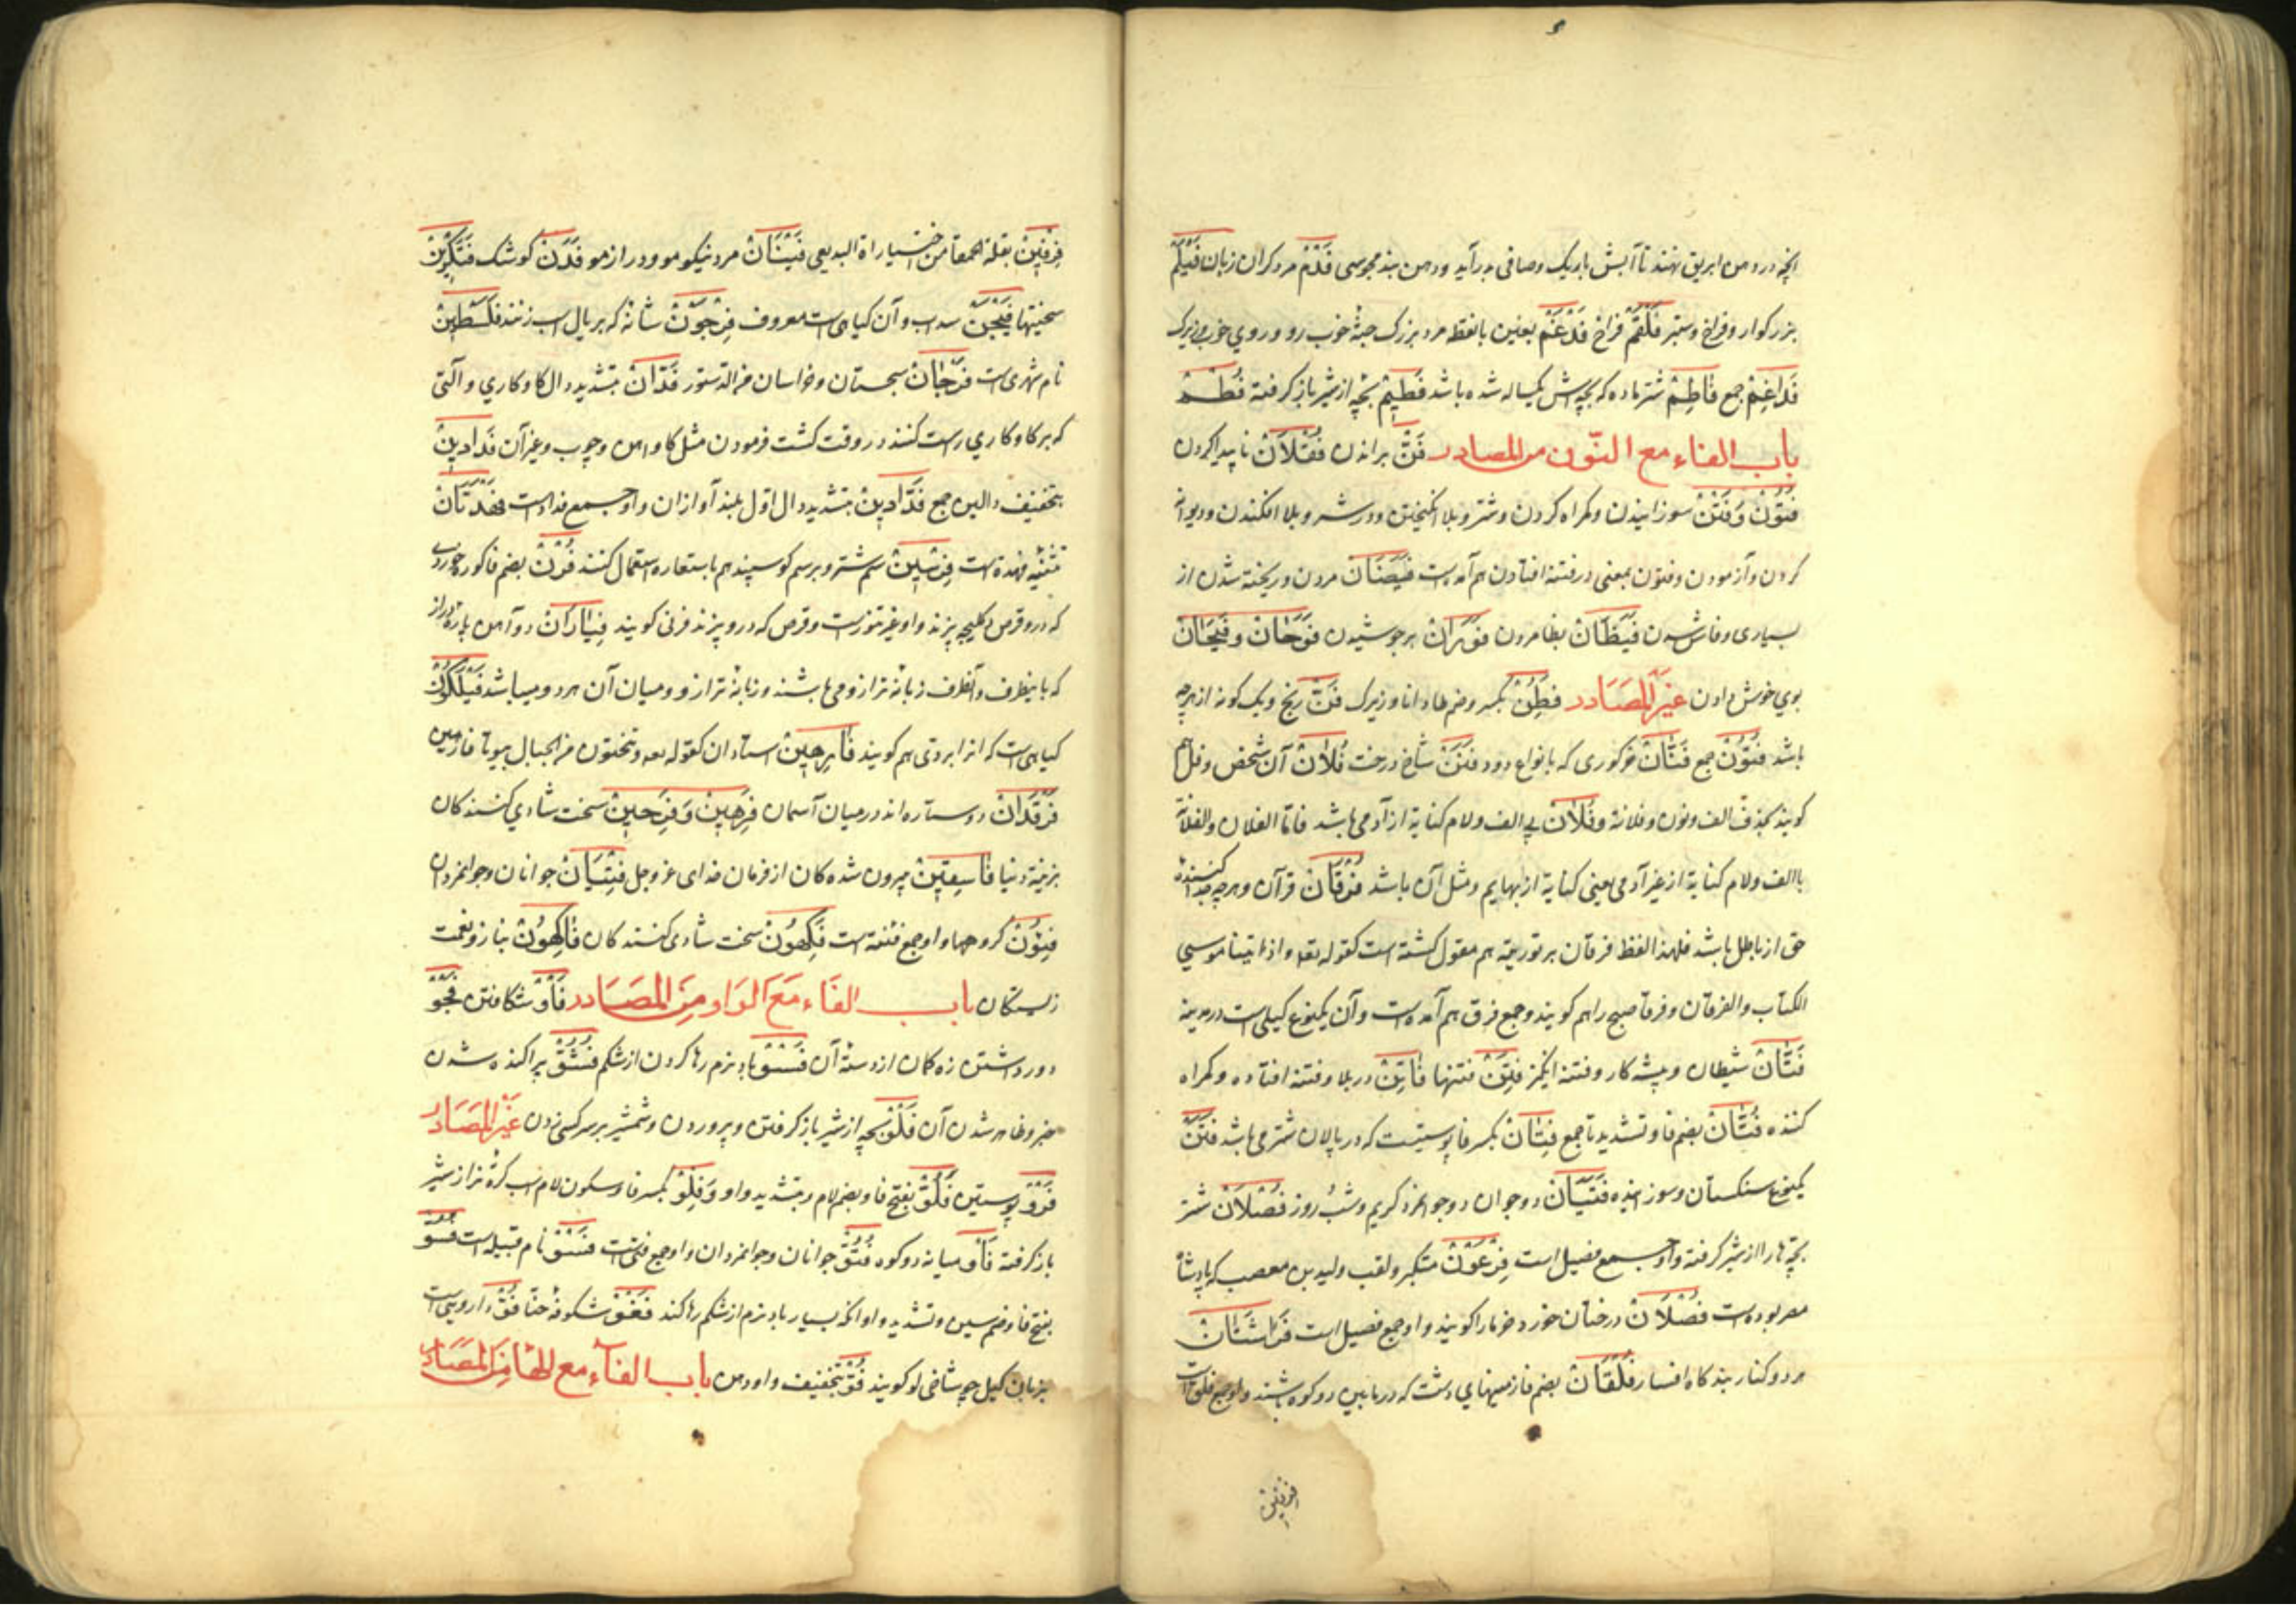 انچه در دهن ابریق نهند تا آبش باریک وصافی برآید ودهن بند مجوسی فَدْمْ مرد کران زبان فَیْلَمْ
بزرکوار وفراخ وستبر فَلْقَمْ فراخ فَدْغَمْ بغین بانقطه مرد بزرک جثه خوب رو وروی خوب
فَدَاغِمْ جمع فَاطِمْ شتر ماده که بچه اش یکساله شده باشد فَطِیْمْ بچه از شیر باز کرفته فُطُمْ
باب الفاء مع النّون من المصادر فَنّ براندن فُقْلَانْ ناپیدا کردن
فُتُوْنْ وَفَتْنْ سوزانیدن وکمراه کردن و بلا انکیختن ودر شر و بلا افکندن ودیوانه
کردن وآزمودن وفتون بمعنی در فتنه افتادن هم آمده است فَیَضَانْ مردن وریخته شدن از
بسیاری وفاش شدن فَیَظَانْ بظا مردن فَوَرَانْ برجوشیدن فَوَحَانْ وفَیَحَانْ
بوی خوش دادن غَیْرُ المَصَادر فَطِنْ بکسر وضم طا دانا وزیرک فَنّ رنج ویک کونه از هرچه
باشد فُنُوْنْ جمع فَتَّانْ خرکوری که بانواع دود فَنَنْ شاخ درخت فُلَانْ آن شخص وفل هم
کویند بحذف الف ونون وفلانة وفُلَانْ بی الف ولام کنایة از آدمی باشد فاما الفلان والفلانة
باالف ولام کنایة از غیر آدمی یعنی کنایة از بهایم ومثل آن باشد فُرْقَانْ قرآن وهرچه جدا کننده
حق از باطل باشد فلهذا لفظ فرقان بر توریة هم مقول کشته است کقوله تعه واذ اتینا موسی
الکتاب والفرقان وفرقا صبح را هم کویند وجمع فرق هم آمده است وآن یکنوع کیلی است در مدینه
فَتَّانْ شیطان وپیشه کار وفتنه انکیز فِتَنْ فتنها فَاتِنْ در بلا وفتنه افتاده وکمراه
کننده فُتَّانْ بضم فا وتشدید تا جمع فِتَانْ بکسر فا پوستیست که در پالان شتر می باشد فَتِنْ
یکنوع سنکستان وسوزانیده فَتَیَانْ دو جوان دو جوانمرد کریم وشب روز فُصْلَانْ شتر
بچه ها را از شیر کرفته واو جمع فصیل است فِرْعَوْنْ متکبر ولقب ولید بن معصب که پادشاه
مصر بوده است فُصْلَانْ درختان خورد خرما را کویند واو جمع فصیل است فَرَاشَتَانْ
هر دو کنار بند کاه افسار فُلْقَانْ بضم فا زمینهای دشت که در مابین دو کوه باشند واو جمع فلق است
افرفین
فِرْفِیْنْ بقلة الحمقا من اختیاراة البدیعی فَیْنَانْ مرد نیکو مو ودراز مو فَدَنْ کوشک فَتَکْرِیْنْ
سختیها فَیْجَنْ سداب وآن کیاهی است معروف فِرْجَوْنْ شانه که بر یال اسب زنند فَلَسْطِیْنْ
نام شهری است فَرْجَانْ سجستان وخراسان من الدستور فَدَّانْ بتشدید دال کاو کاری وآلتی
که بر کاو کاری راست کنند در وقت کشت فرمودن مثل کاو آهن وچوب وغیر آن فَدَادِیْنْ
بتخفیف دالین جمع فَدَّادِیْنْ بتشدید دال اوّل بلند آوازان واو جمع فداد است فَهْدَتَانْ
تثنیه فهدة است فِرْسِیْنْ سم شتر وبر سم کوسپند هم باستعاره استعمال کنند فُرْنْ بضم فا کوره
که در وقرص وکلیچه پزند واو غیر تنورست وقرص که در و پزند فرنی کویند فِیَارَانْ دو آهن پاره دراز
که باینطرف وآنطرف زبانه ترازو می باشند وزبانه ترازو ومیان آن هر دو میباشد فَیْلَکُوْنْ
کیاهی است که انرا بردی هم کویند فَارِهِیْنْ استادان کقوله تعه وتنحتون من الجبال بیوتا فارهین
فَرْقَدَانْ دو ستاره اند در میان آسمان فَرِهِیْنْ وَفَرِحِیْنْ سخت شادی کنند کان
بزینة دنیا فَاسِقِیْنْ بیرون شده کان از فرمان خدای عزوجل فِتْیَانْ جوانان وجوانمردان
فِئُوْنْ کروهها واو جمع فئه است فَکِهُوْنْ سخت شادی کنند کان فَاکِهُوْنْ بناز ونعمت
زیستکان باب الفَاء مَعَ الوَاو مِنَ المَصَادر فَأْوْ شکافتن فَجْوْ
دور داشتن زه کمان از دستهٔ آن فَسْوْ باد نرم رها کردن از شکم فُشُوّْ پراکنده شدن
خبر وظاهر شدن آن فَلْوْ بچه از شیر باز کرفتن وپروردن وشمشیر بر سر کسی زدن غَیْرُ المَصَادر
فَرْوْ پوستین فَلُوّْ بفتح فا وبضم لام وبتشدید واو وَفِلْوْ بکسر فا وسکون لام اسب کره نر از شیر
باز کرفته فَأْوْ میانه دو کوه فُتُوّْ جوانان وجوانمردان واو جمع فتی است فَسْوْ نام قبیله است فَسُوّْ
بفتح فا وضم سین وتشدید واو انکه بسیار باد نرم از شکم رها کند فَغْوْ شکوفه حنّا فُوّْ داروییست
بزبان کیل چه شاخی لو کویند فُوْ بتخفیف واو دهن باب الفآء مع الهَا مِنَ المَصَادر